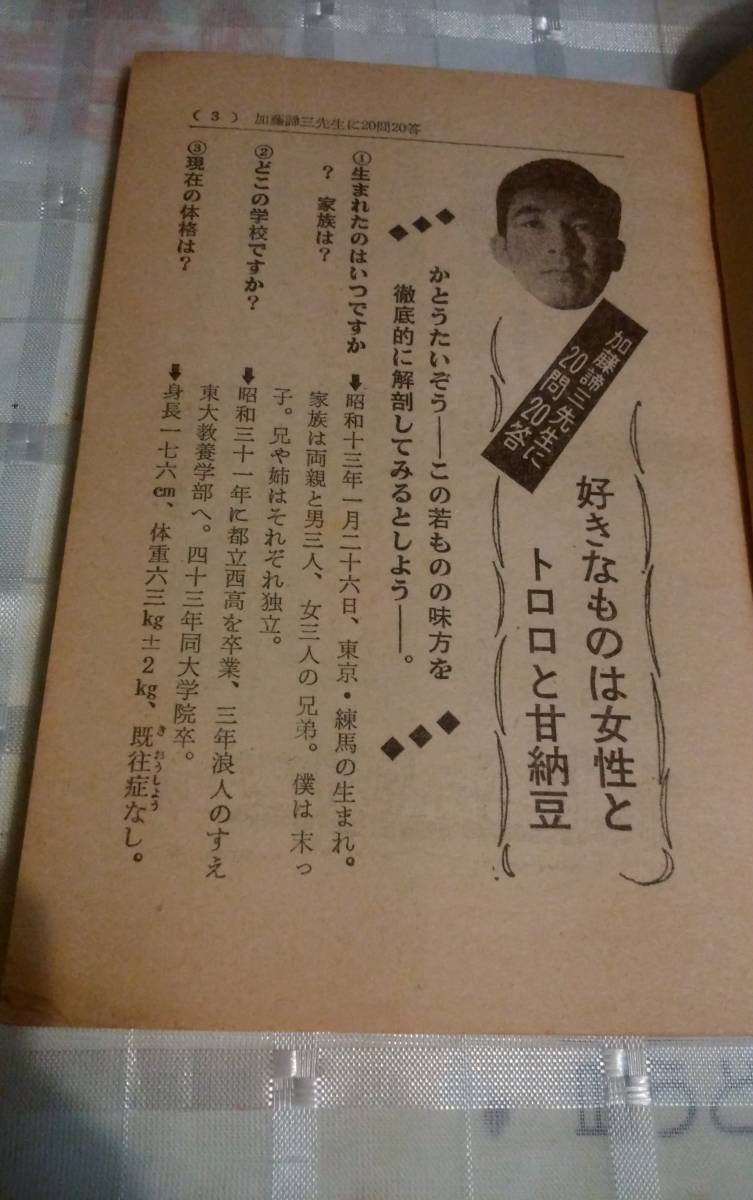 (3) 加藤諦三先生に20問20答
加藤諦三先生に
20問20答
好きなものは女性と
トロロと甘納豆
かとうたいぞう――この若ものの味方を
徹底的に解剖してみるとしよう――。
①生まれたのはいつですか
? 家族は?
➡昭和十三年一月二十六日、東京・練馬の生まれ。
家族は両親と男三人、女三人の兄弟。僕は末っ
子。兄や姉はそれぞれ独立。
②どこの学校ですか?
➡昭和三十一年に都立西高を卒業、三年浪人のすえ
東大教養学部へ。四十三年同大学院卒。
③現在の体格は?
➡身長一七六cm、体重六三kg±2kg、既往症なし。
きおうしよう